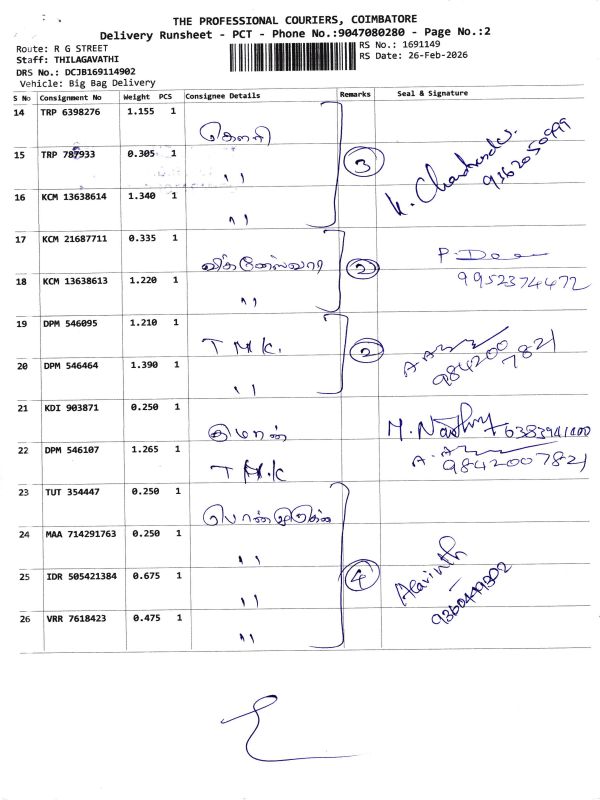 THE PROFESSIONAL COURIERS, COIMBATORE
Delivery Runsheet - PCT - Phone No.:9047080280 - Page No.:2
Route: R G STREET
Staff: THILAGAVATHI
DRS No.: DCJB169114902
Vehicle: Big Bag Delivery
RS No.: 1691149
RS Date: 26-Feb-2026
S No Consignment No Weight PCS Consignee Details Remarks Seal & Signature
14 TRP 6398276 1.155 1 கௌரி
15 TRP 787933 0.305 1 " 3 K. 9362050999
16 KCM 13638614 1.340 1 "
17 KCM 21687711 0.335 1 2 P.
18 KCM 13638613 1.220 1 " 9952374472
19 DPM 546095 1.210 1 T M K. 2
20 DPM 546464 1.390 1 " 9842007821
21 KDI 903871 0.250 1 M. 6383941400
22 DPM 546107 1.265 1 T M K 9842007821
23 TUT 354447 0.250 1
24 MAA 714291763 0.250 1 "
25 IDR 505421384 0.675 1 " 4
26 VRR 7618423 0.475 1 "